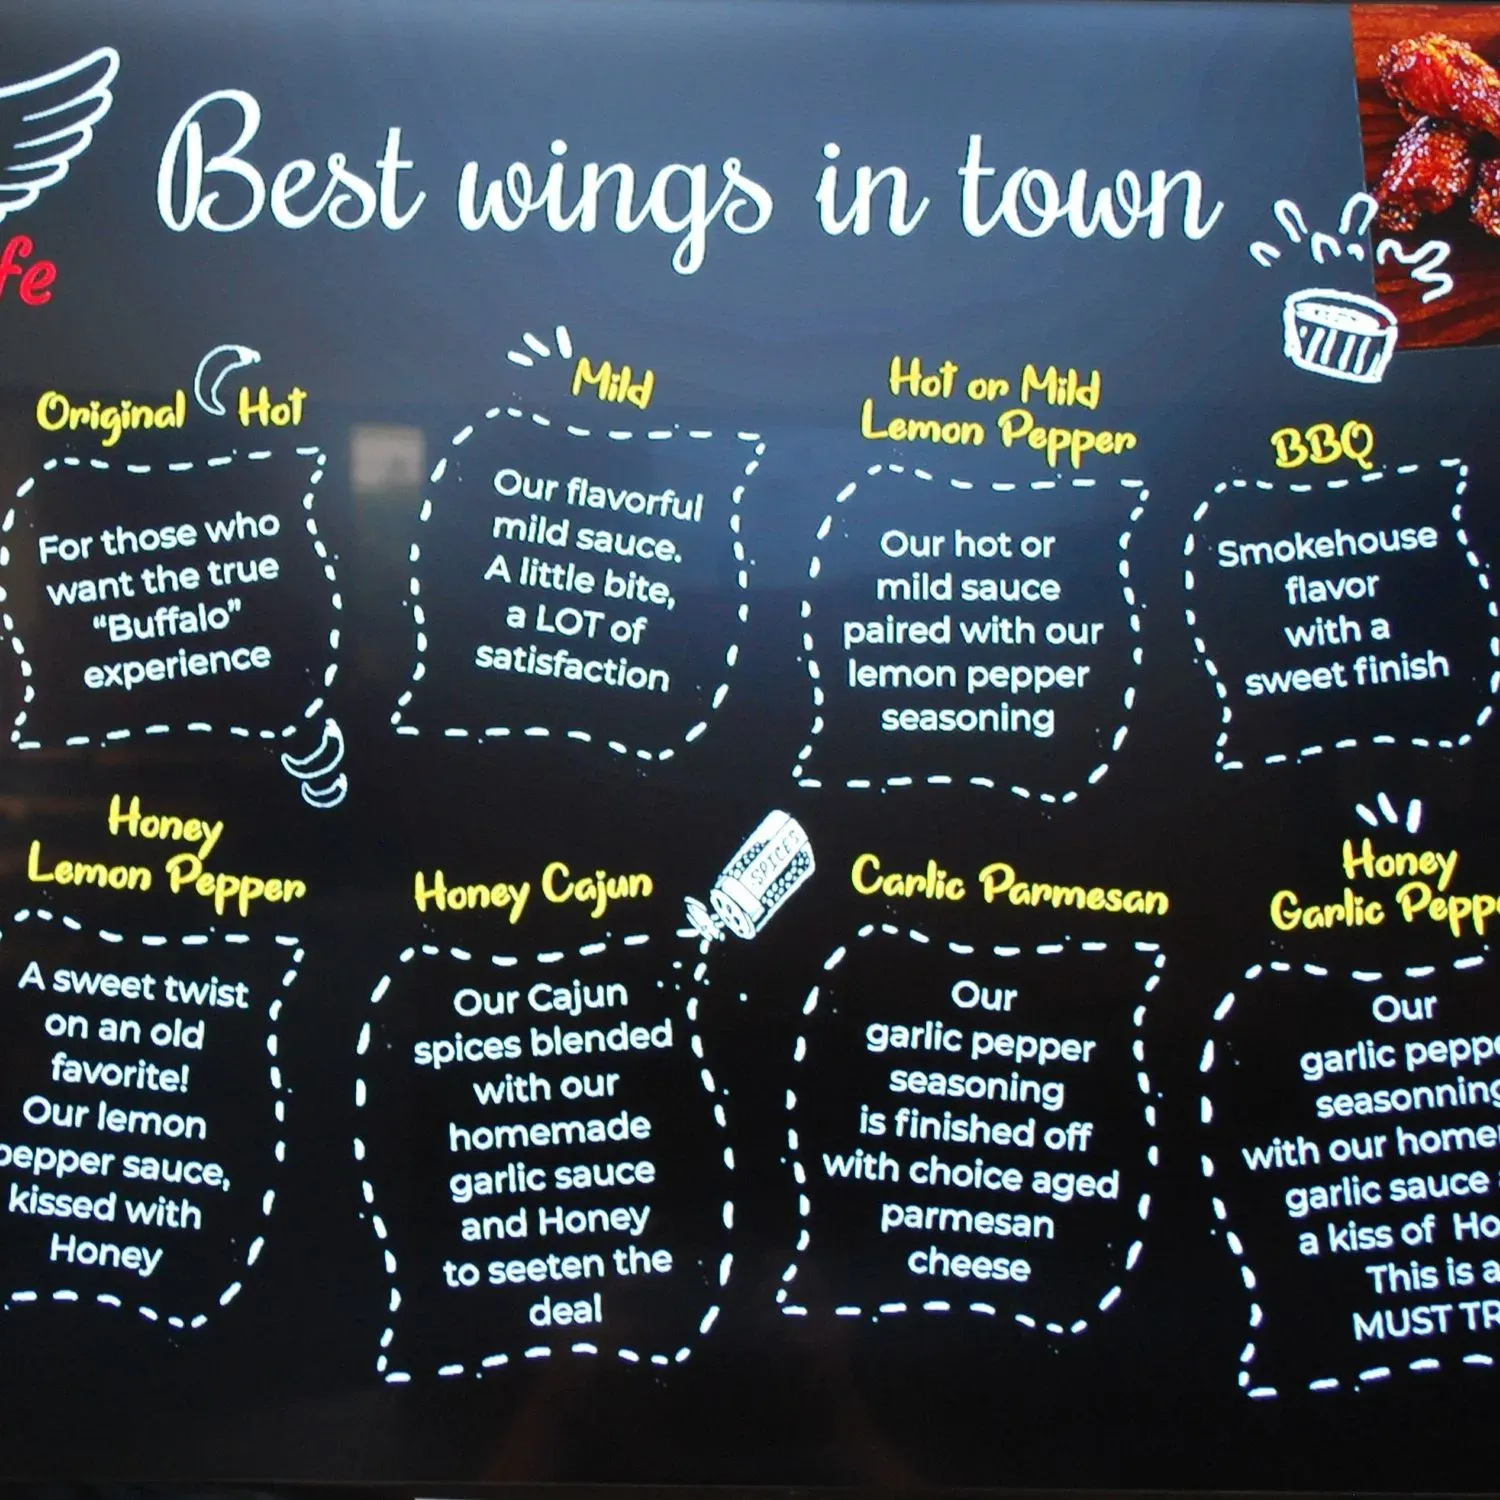 fe
Best wings in town
Original Hot
For those who
want the true
“Buffalo”
experience
Mild
Our flavorful
mild sauce.
A little bite,
a LOT of
satisfaction
Hot or Mild
Lemon Pepper
Our hot or
mild sauce
paired with our
lemon pepper
seasoning
BBQ
Smokehouse
flavor
with a
sweet finish
Honey
Lemon Pepper
A sweet twist
on an old
favorite!
Our lemon
pepper sauce,
kissed with
Honey
Honey Cajun
SPICES
Our Cajun
spices blended
with our
homemade
garlic sauce
and Honey
to seeten the
deal
Carlic Parmesan
Our
garlic pepper
seasoning
is finished off
with choice aged
parmesan
cheese
Honey
Garlic Peppe
Our
garlic peppe
seasonning
with our home
garlic sauce
a kiss of Ho
This is a
MUST TR